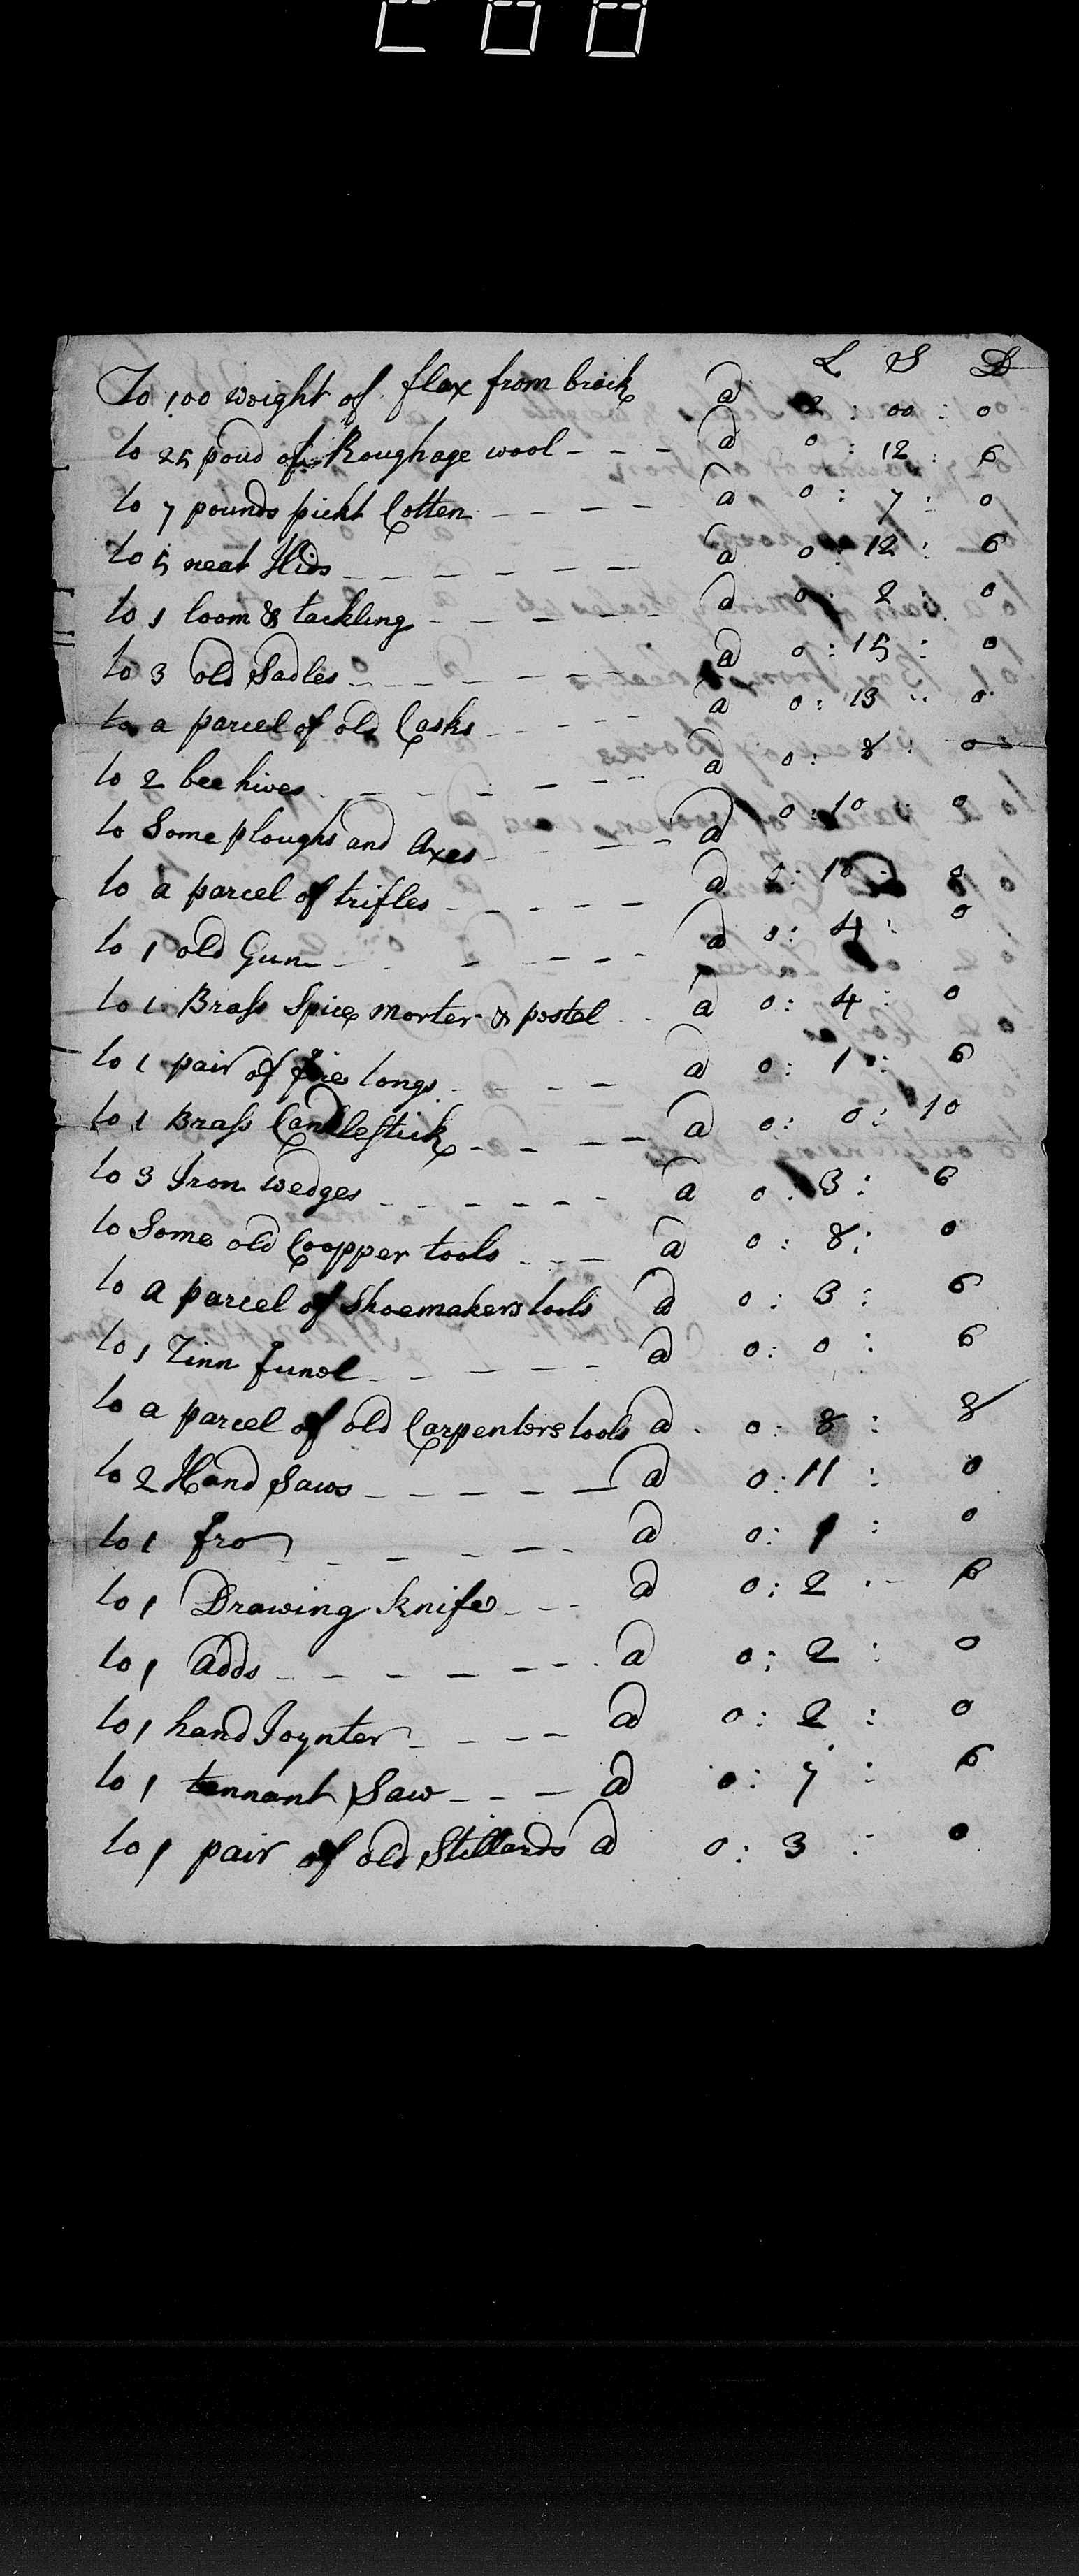 L S D
To 100 weight of flax from brack a 2 : 00 : 0
to 25 poud of Roughage wool - - - a 0 : 12 : 6
to 7 pounds pickt Cotten - - - - a 0 : 7 : 0
to 5 neat Hids - - - - - - - a 0 : 12 : 6
to 1 loom & tackling - - - - - a 0 : 2 : 0
to 3 old Sadles - - - - - - a 0 : 15 : 0
to a parcel of old Casks - - - - a 0 : 13 : 0
to 2 bee hives - - - - - - a 0 : 8 : 0
to Some ploughs and Axes - - - - a 0 : 10 : 0
to a parcel of trifles - - - - - a 0 : 10 : 0
to 1 old Gun - - - - - - a 0 : 4 : 0
to 1 Brass Spice morter & postel a 0 : 4 : 0
to 1 pair of fire tongs - - - - a 0 : 1 : 6
to 1 Brass Candlestick - - - - a 0 : 0 : 10
to 3 Iron wedges - - - - - - a 0 : 3 : 6
to Some old Coopper tools - - - a 0 : 8 : 0
to a parcel of Shoemakers tools a 0 : 3 : 6
to 1 Tinn funel - - - - - a 0 : 0 : 6
to a parcel of old Carpenters tools a 0 : 8 : 8
to 2 Hand Saws - - - - - a 0 : 11 : 0
to 1 fro - - - - - - a 0 : 1 : 0
to 1 Drawing knife - - - a 0 : 2 : 6
to 1 adds - - - - - - - a 0 : 2 : 0
to 1 hand Joynter - - - - a 0 : 2 : 0
to 1 tennant Saw - - - a 0 : 7 : 6
to 1 pair of old Stillards a 0 : 3 : 0